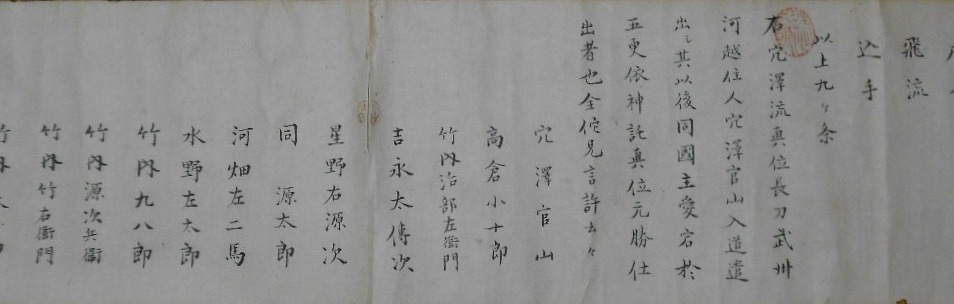 飛流
込手
以上九ヶ条
右穴澤流真位長刀武州
河越住人穴澤官山入道遣
出之其以後同國主愛宕於
五更依神託真位元勝仕
出者也全他見言許去々
穴澤官山
高倉小十郎
竹内治部左衛門
吉永太傳次
星野右源次
同源太郎
河畑左二馬
水野左太郎
竹内九八郎
竹内源次兵衛
竹内竹右衛門